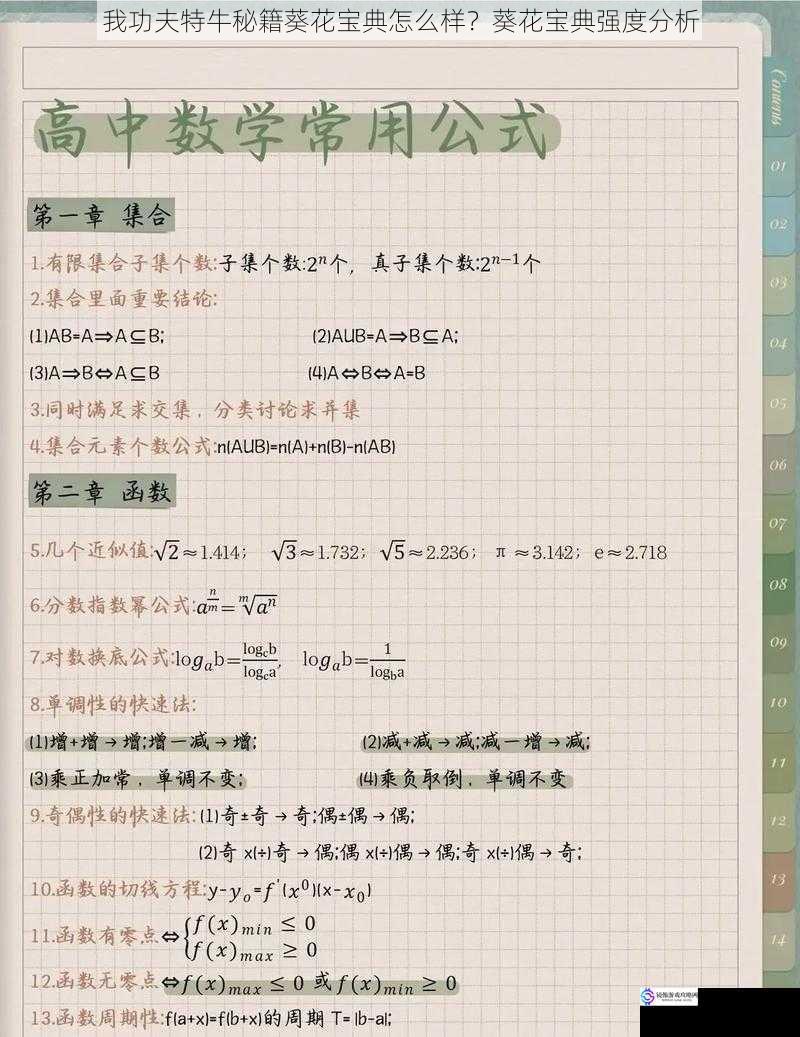 我功夫特牛秘籍葵花宝典怎么样？葵花宝典强度分析
Contents
高中数学常用公式
01
02
03
04
05
06
07
08
09
10
11
12
13
14
第一章 集合
1.有限集合子集个数:子集个数:2ⁿ个，真子集个数:2ⁿ⁻¹个
2.集合里面重要结论:
(1)AB=A⇒A⊆B; (2)AUB=A⇒B⊆A;
(3)A⇒B⇔A⊆B (4)A⇔B⇔A=B
3.同时满足求交集，分类讨论求并集
4.集合元素个数公式:n(AUB)=n(A)+n(B)-n(AB)
第二章 函数
5.几个近似值:√2≈1.414; √3≈1.732; √5≈2.236; π≈3.142; e≈2.718
6.分数指数幂公式:a^(n/m)=ᵐ√(aⁿ)
7.对数换底公式:logₐb=log_c b/log_c a, logₐb=1/log_b a
8.单调性的快速法:
(1)增+增→增;增一减→增; (2)减+减→减;减一增→减;
(3)乘正加常，单调不变; (4)乘负取倒，单调不变
9.奇偶性的快速法:(1)奇±奇→奇;偶±偶→偶;
(2)奇 x(÷)奇→偶;偶 x(÷)偶→偶;奇 x(÷)偶→奇;
10.函数的切线方程:y-y₀=f'(x⁰)(x-x₀)
11.函数有零点⇔{f(x)min≤0
f(x)max≥0
12.函数无零点⇔f(x)max≤0 或 f(x)min≥0
13.函数周期性:f(a+x)=f(b+x)的周期 T= |b-a|;